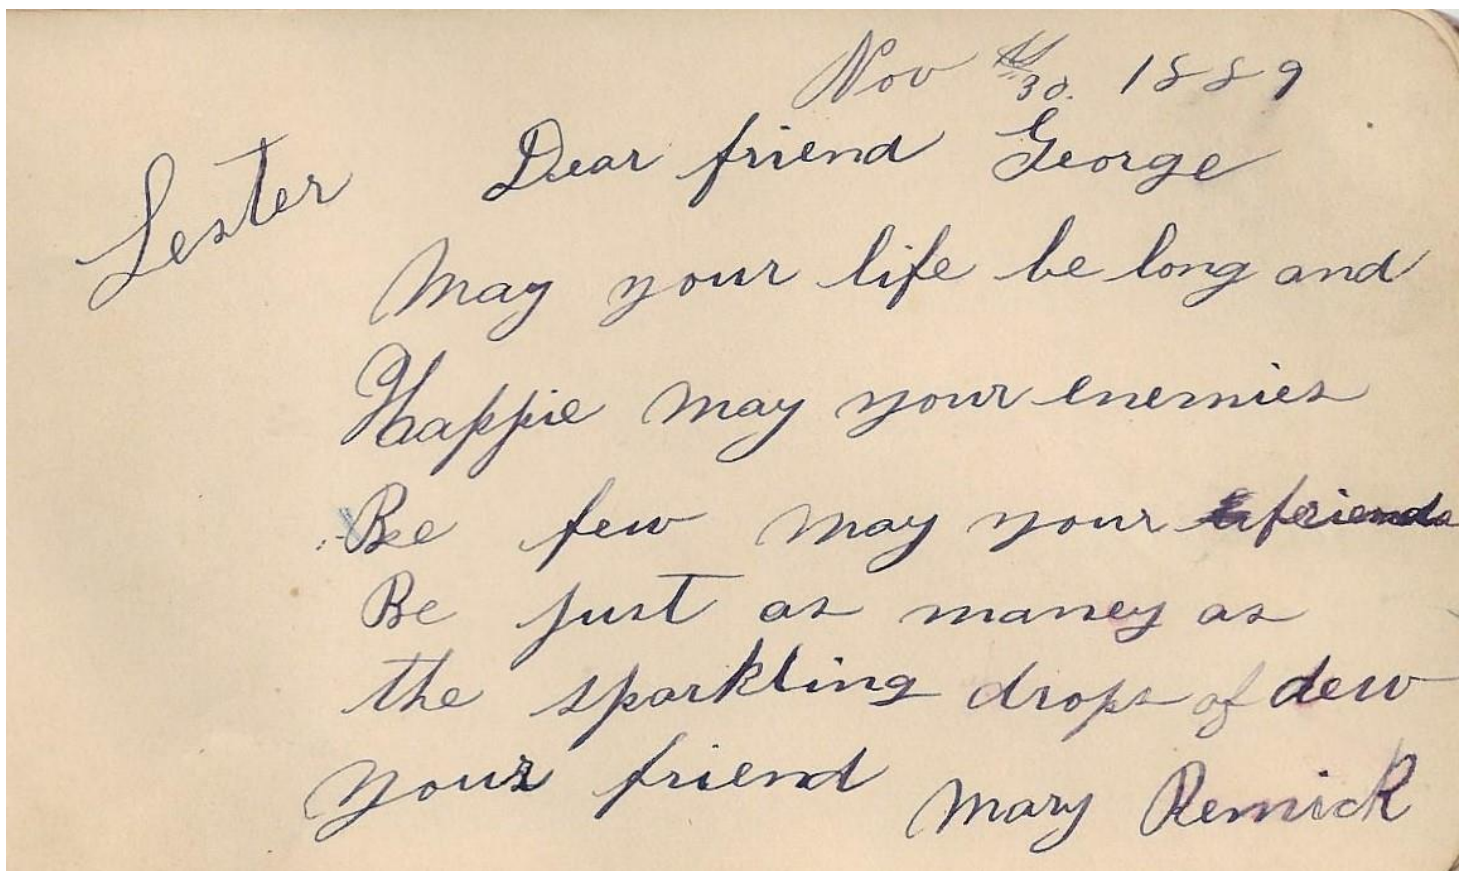 Nov 30. 1889
Lester
Dear friend George
May your life be long and
Happie may your enemies
Be few may your friends
Be just as maney as
the sparkling drops of dew
your friend Mary Remick